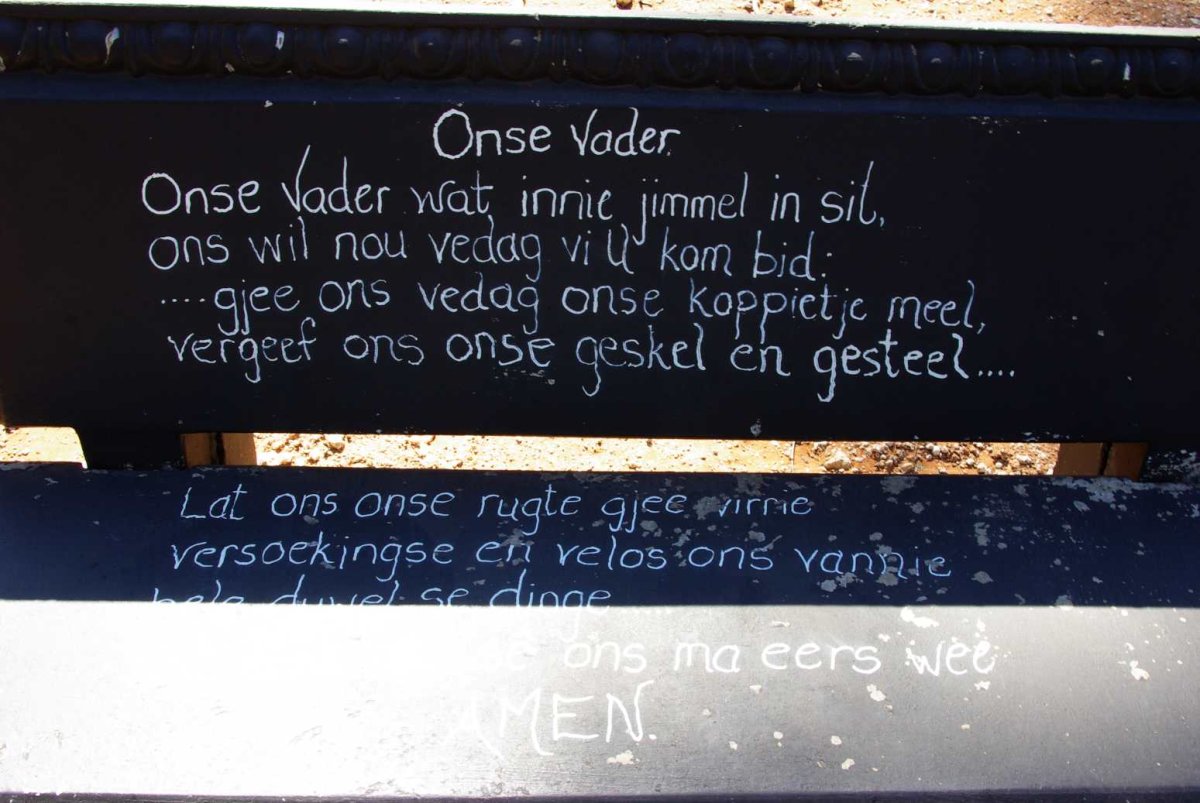 Onse Vader.
Onse Vader wat innie jimmel in sit,
ons wil nou vedag vi U kom bid:
....gjee ons vedag onse koppietje meel,
vergeef ons onse geskel en gesteel....
Lat ons onse rugte gjee virrie
versoekingse en velos ons vannie
hele duwel se dinge.....
ons ma eers wee
AMEN.